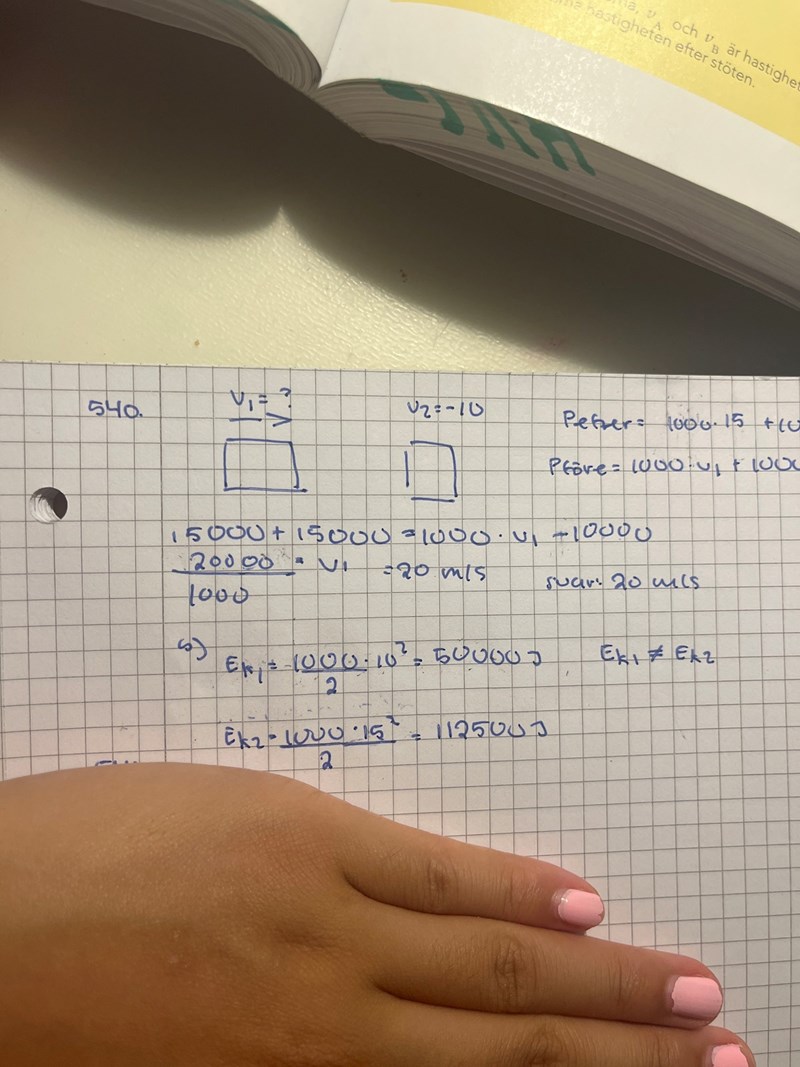 och v
A
B är hastighet
hastigheten efter stöten.
540.
V1 = ?
V2=-10
Pefter = 1000·15 +10
Pföre = 1000·v1 + 1000
15000 + 15000 = 1000 · V1 -10000
20000 = V1 = 20 m/s
1000
svar: 20 m/s
b)
Ek1 = 1000·10² = 50000J
2
Ek1 ≠ Ek2
Ek2 = 1000·15² = 112500J
2